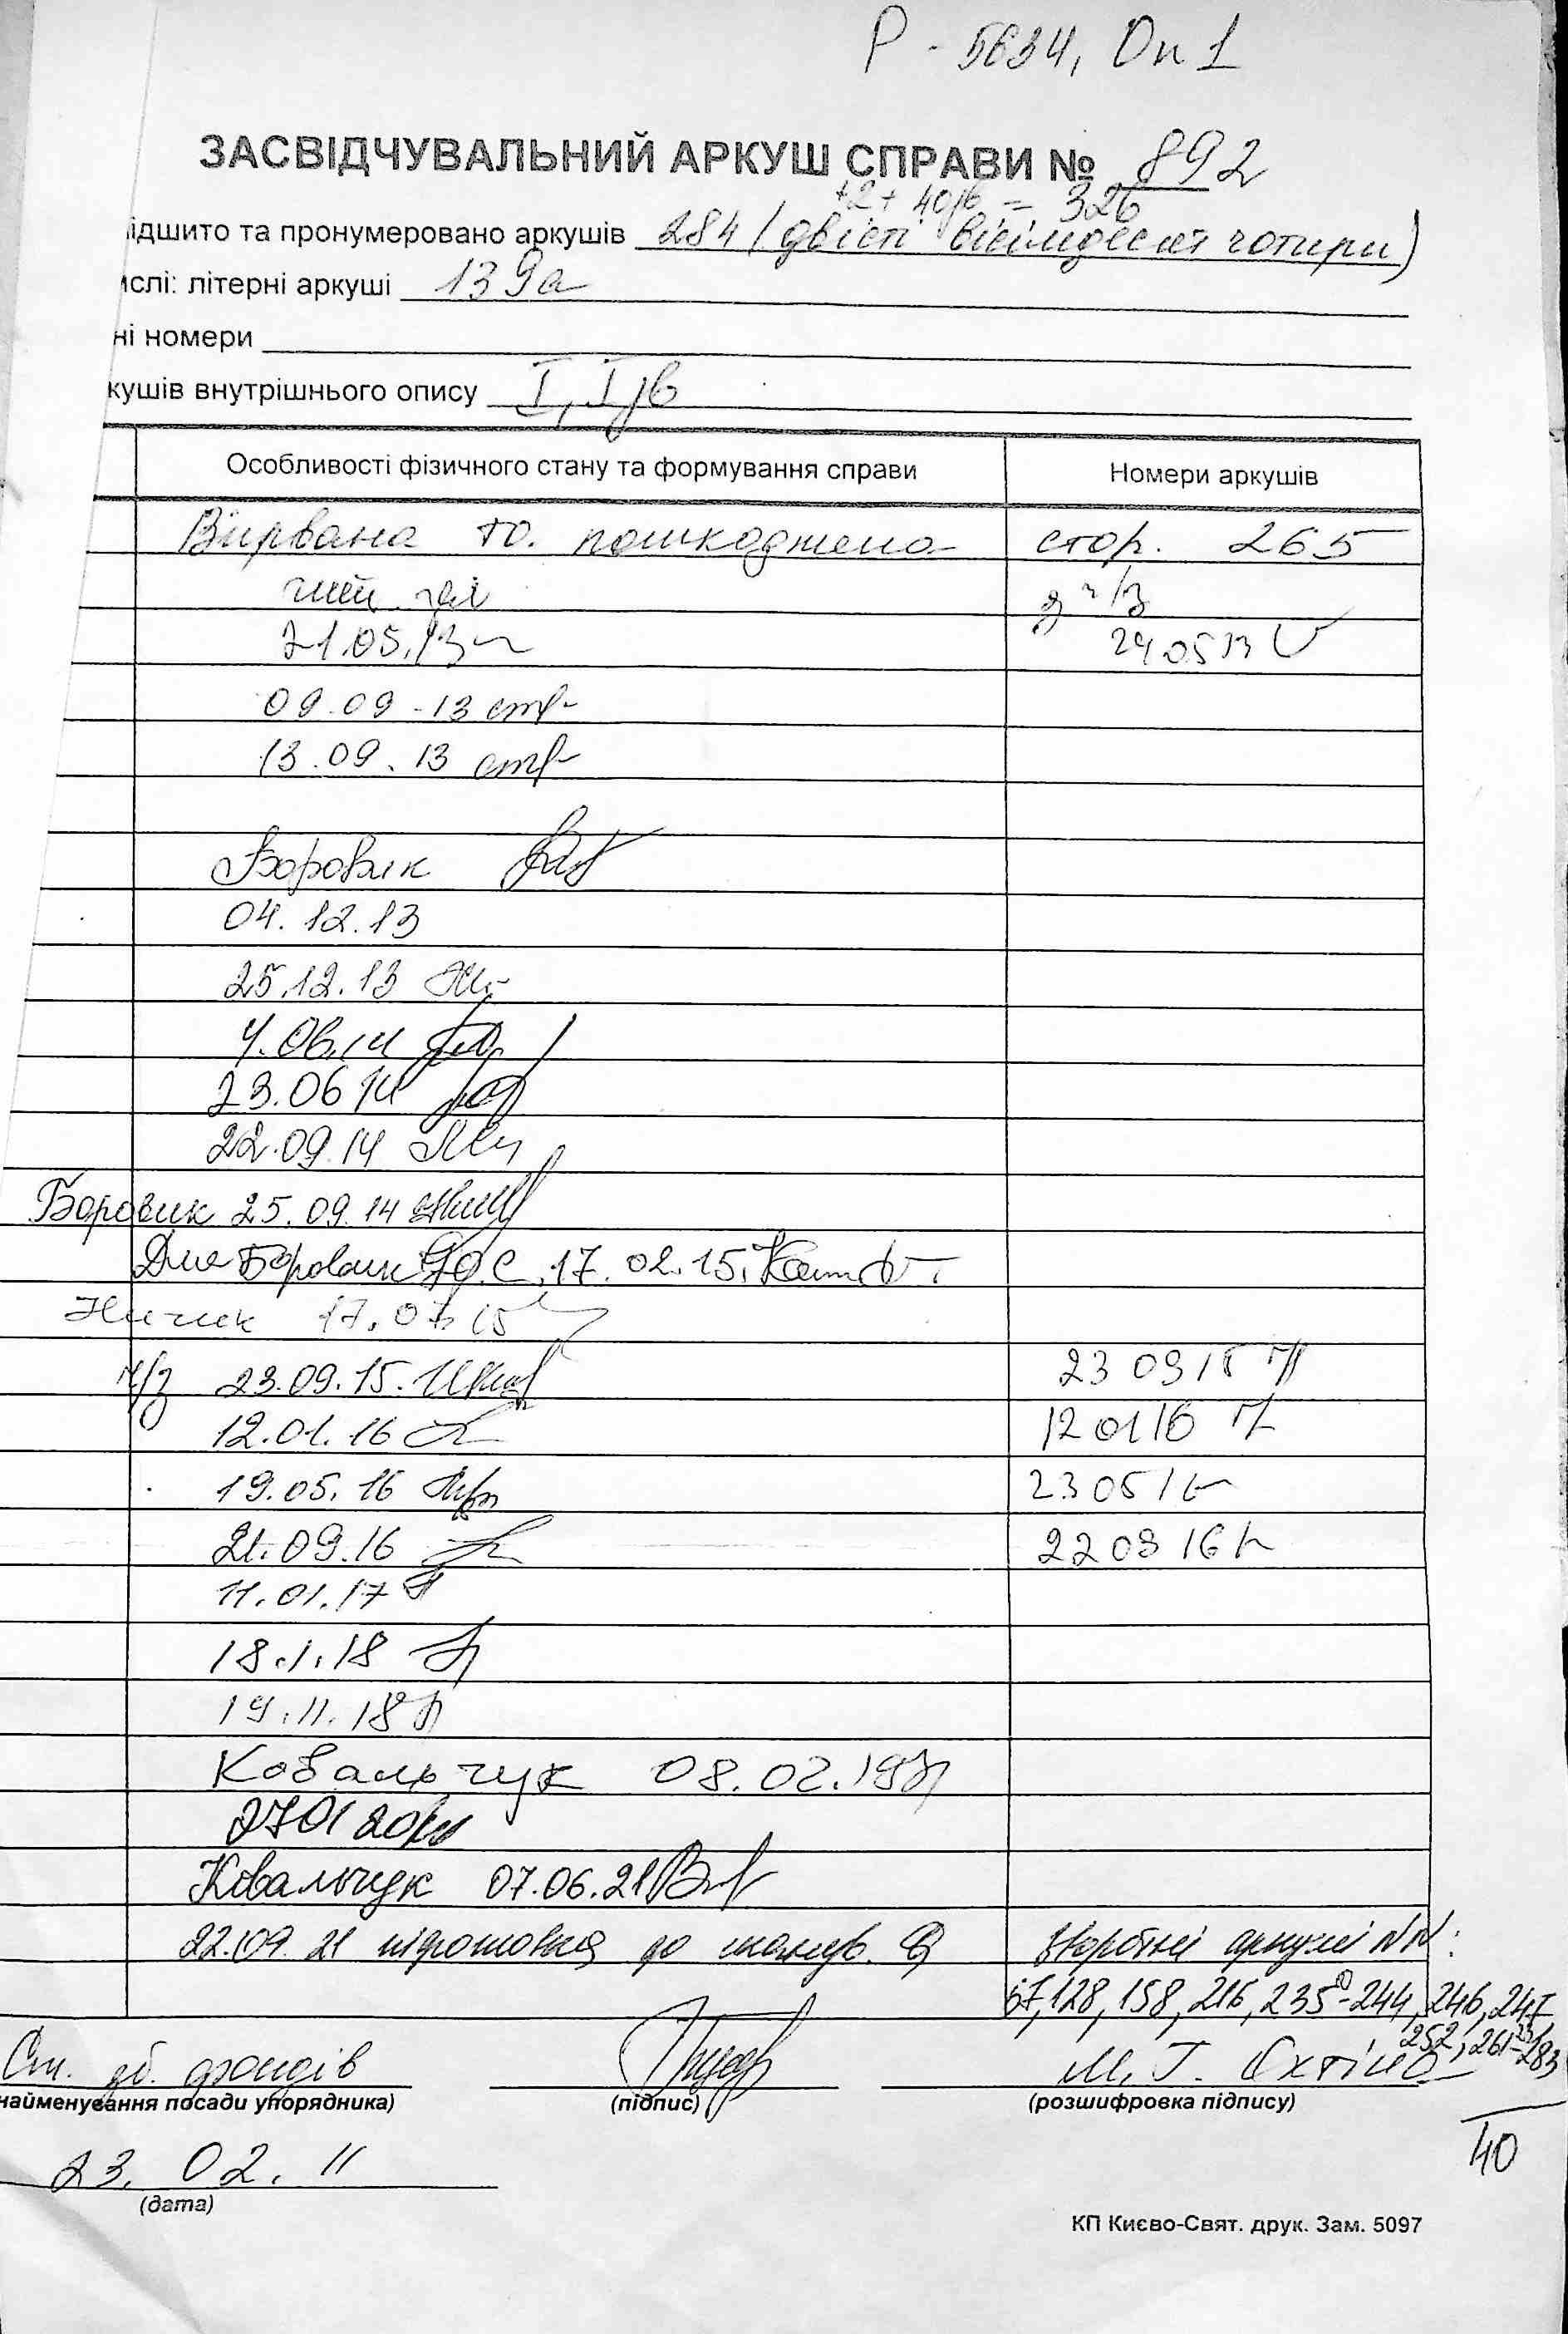 Р - 5634, Оп 1
ЗАСВІДЧУВАЛЬНИЙ АРКУШ СПРАВИ № 892
+2+ 40зв = 326
ідшито та пронумеровано аркушів 284 (двісті вісімдесят чотири)
ислі: літерні аркуші 139а
ні номери
кушів внутрішнього опису I, Iзв
Особливості фізичного стану та формування справи Номери аркушів
Вирвана та пошкоджена стор. 265
ч/з
21.05.13 240513
09.09-13
13.09.13
Боровик
04.12.13
25.12.13
4.06.14
23.06 14
22.09.14
Боровик 25.09.14
Для Боровик 17.02.15
17.07 15
ч/з 23.09.15. 23 09 15
12.01.16 12 01 16
19.05.16 23 05 16
21.09.16 22 09 16
11.01.17
18.1.18
19.11.18
Ковальчук 08.02.19
27 01 20
Ковальчук 07.06.21
22.09 21 підготовка до сканув. Зворотні аркуші NN:
67, 128, 158, 216, 235-244, 246, 247
252, 261-283
Ст. зб. фондів М. Г. Охтіна
найменування посади упорядника) (підпис) (розшифровка підпису)
40
23. 02. 11
(дата)
КП Києво-Свят. друк. Зам. 5097